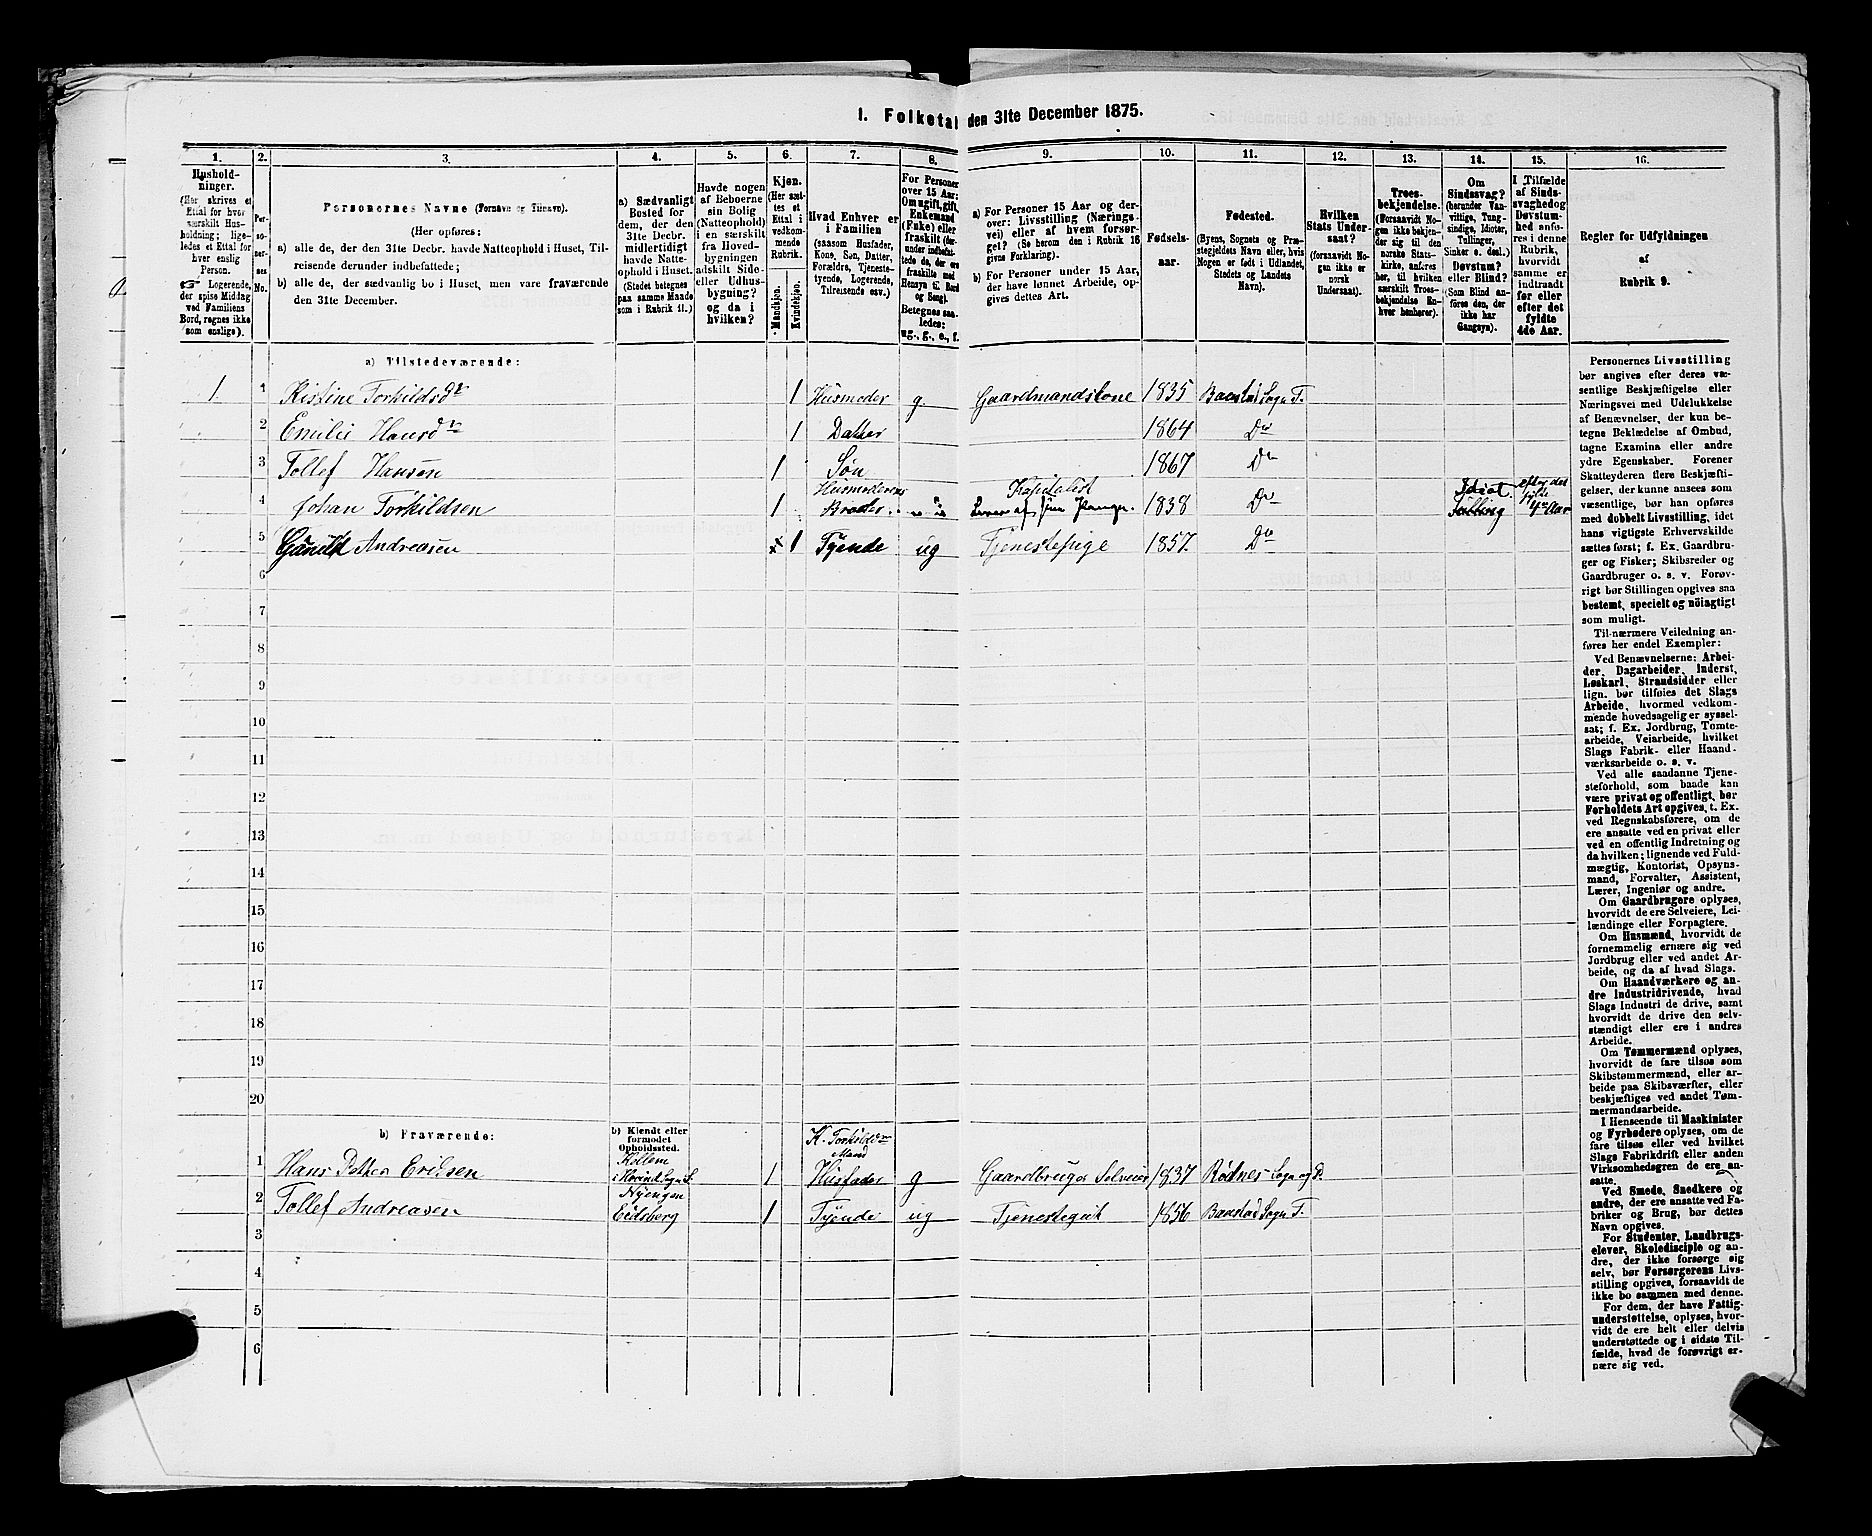 I. Folketal den 31te December 1875.
1. 2. 3. 4. 5. 6. 7. 8. 9. 10. 11. 12. 13. 14. 15. 16.
Husholdninger.
(Her skrives et Ettal for hver særskilt Husholdning; ligeledes et Ettal for hver enslig Person.
☞ Logerende, der spise Middag ved Familiens Bord, regnes ikke som enslige).
Personernes No.
Personernes Navne (Fornavn og Tilnavn).
(Her opføres:
a) alle de, der den 31te Decbr. havde Natteophold i Huset, Tilreisende derunder indbefattede;
b) alle de, der sædvanlig bo i Huset, men vare fraværende den 31te December.
a) Sædvanligt Bosted for dem, der den 31te Decbr. midlertidigt havde Natteophold i Huset. (Stedet betegnes paa samme Maade som i Rubrik 11.)
Havde nogen af Beboerne sin Bolig (Natteophold) i en særskilt fra Hovedbygningen adskilt Side- eller Udhusbygning? og da i hvilken?
Kjøn.
(Her sættes et Ettal i vedkommende Rubrik.
Mandkjøn.
Kvindekjøn.
Hvad Enhver er i Familien
(saasom Husfader, Kone, Søn, Datter, Forældre, Tjenestetyende, Logerende, Tilreisende osv.)
For Personer over 15 Aar: Om ugift, gift, Enkemand (Enke) eller fraskilt
Betegnes saaledes: ug., g., e., f.
a) For Personer 15 Aar og derover: Livsstilling (Næringsvei) eller af hvem forsørget? (Se herom den i Rubrik 16 givne Forklaring).
b) For Personer under 15 Aar, der have lønnet Arbeide, opgives dettes Art.
Fødselsaar.
Fødested.
(Byens, Sognets og Præstegjeldets Navn eller, hvis Nogen er født i Udlandet, Stedets og Landets Navn).
Hvilken Stats Undersaat?
(forsaavidt Nogen ikke er norsk Undersaat).
Troesbekjendelse.
(Forsaavidt Nogen ikke bekjender sig til den norske Statskirke, anføres her, til hvilken særskilt Troesbekjendelse Enhver henhører).
Om Sindssvag? (herunder Vanvittige, Tungsindige, Idioter, Tullinger, Sinker o. desl.) Døvstum? eller Blind? (Som Blind anføres den, der ikke har Gangsyn).
I Tilfælde af Sindssvaghed og Døvstumhed anføres i denne Rubrik, hvorvidt samme er indtraadt før eller efter det fyldte 4de Aar.
Regler for Udfyldningen af Rubrik 9.
a) Tilstedeværende:
1 1 Kistine Torkildsdr 1 Husmoder g. Gaardmandskone 1835 Baastad Sogn T.
2 Emilie Hansdr 1 Datter 1864 Do
3 Tollef Hansen 1 Søn 1867 Do
4 Johan Torkildsen 1 Husmoderens Broder Kapitalist Lever af sine Penge. 1838 Do Idiot. Tulling efter det fylde 4de Aar
5 Andreasen 1 Tyende ug Tjenestepige 1857 Do
6
7
8
9
10
11
12
13
14
15
16
17
18
19
20
b) Fraværende:
b) Kjendt eller formodet Opholdssted.
1 Hans Petter Eriksen 1 K. Torkildsens Mand Husfader g Gaardbruger Selveier 1837 Rødnes Sogn og P.
2 Tollef Andreasen Eidsberg 1 Tyende ug Tjenestegut 1856 Baastad Sogn T.
3
4
5
6
Personernes Livsstilling bør angives efter deres væsentlige Beskjæftigelse eller Næringsvei med Udelukkelse af Benævnelser, der kun betegne Beklædelse af Ombud, tagne Examina eller andre ydre Egenskaber. Forener Skatteyderen flere Beskjæftigelser, der kunne ansees som væsentlige, bør han opføres med dobbelt Livsstilling, idet hans vigtigste Erhvervskilde sættes først; f. Ex. Gaardbruger og Fisker; Skibsreder og Gaardbruger o. s. v. Forøvrigt bør Stillingen opgives saa bestemt, specielt og nöiagtigt som muligt.
Til nærmere Veiledning anføres her endel Exempler:
Ved Benævnelserne: Arbeider, Dagarbeider, Inderst, Løskarl, Strandsidder eller lign. bør tilføies det Slags Arbeide, hvormed vedkommende hovedsagelig er sysselsat; f. Ex. Jordbrug, Tomtearbeide, Veiarbeide, hvilket Slags Fabrik- eller Haandværksarbeide o. s. v.
Ved alle saadanne Tjenesteforhold, som baade kan være privat og offentligt, bør Forholdets Art opgives, t. Ex. ved Regnskabsførere, om de ere ansatte ved en privat eller ved en offentlig Indretning og da hvilken; lignende ved Fuldmægtig, Kontorist, Opsynsmand, Forvalter, Assistent, Lærer, Ingeniør og andre.
Om Gaardbrugere oplyses, hvorvidt de ere Selveiere, Leilændinge eller Forpagtere.
Om Husmænd, hvorvidt de fornemmelig ernære sig ved Jordbrug eller ved andet Arbeide, og da af hvad Slags.
Om Haandværkere og andre Industridrivende, hvad Slags Industri de drive, samt hvorvidt de drive den selvstændigt eller ere i andres Arbeide.
Om Tømmermænd oplyses, hvorvidt de fare tilsøs som Skibstømmermænd, eller arbeide paa Skibsværfter, eller beskjæftiges ved andet Tømmermandsarbeide.
I Henseende til Maskinister og Fyrbødere oplyses, om de fare tilsøs eller ved hvilket Slags Fabrikdrift eller anden Virksomhedsgren de ere ansatte.
Ved Smede, Snedkere og andre, der ere ansatte ved Fabriker og Brug, bør dettes Navn opgives.
For Studenter, Landbrugselever, Skoledisciple og andre, der ikke forsørge sig selv, bør Forsørgerens Livsstilling opgives, forsaavidt de ikke bo sammen med denne.
For dem, der have Fattigunderstøttelse, oplyses, hvorvidt de ere helt eller delvis understøttede og i sidste Tilfælde, hvad de forøvrigt ernære sig ved.